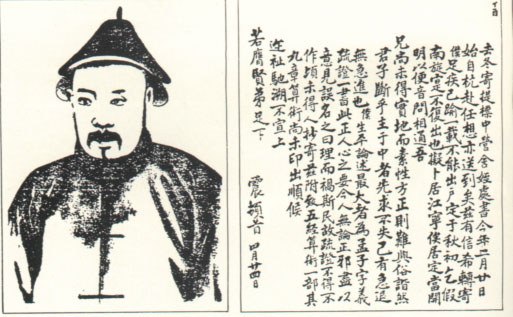 丁酉
去冬寄提標中營舍姪處書今年二月廿日
始自杭赴任想亦送到矣茲有信希轉寄
僕足疾已踰一載不能出戶定于秋初乞假
南旋定不復出也擬卜居江寧俟居定當開
明以便音問相通吾
兄尚未得實地而素性方正則雖與俗諧然
君子斷乎主于中者先求不失己有急退
無急進也僕生平論述最大者為孟子字義
疏證一書此正人心之要今人無論正邪盡以
意見誤名之曰理而禍斯民故疏證不得不
作頃未得人抄寄茲附致五經算術一部其
九章算術尚未印出順候
近祉馳溯不宣上
若膺賢弟足下
震頓首 四月廿四日